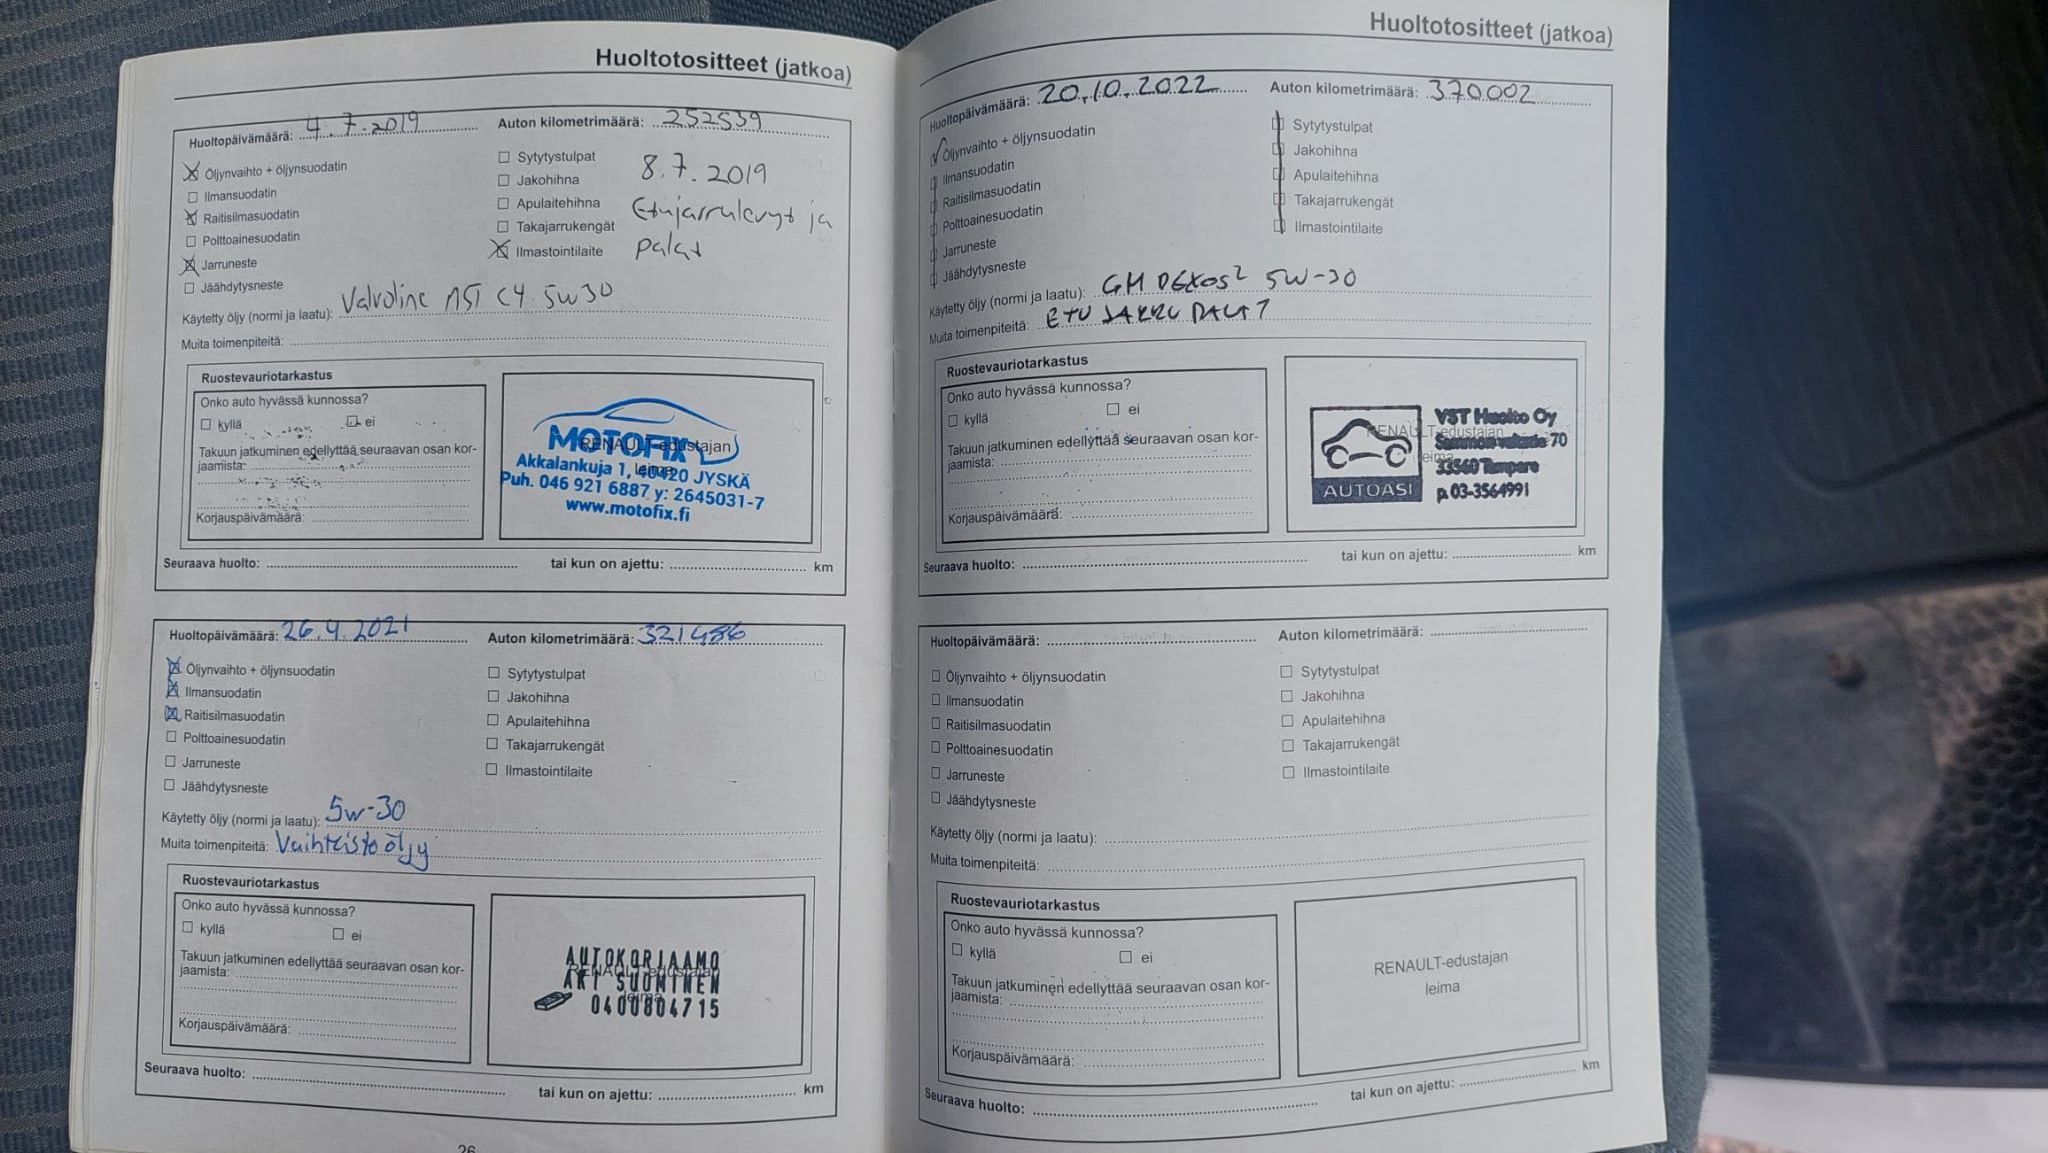 Huoltotositteet (jatkoa)
Huoltopäivämäärä: 4.7.2019 Auton kilometrimäärä: 252539
Öljynvaihto + öljynsuodatin
Ilmansuodatin
Raitisilmasuodatin
Polttoainesuodatin
Jarruneste
Jäähdytysneste
Sytytystulpat
Jakohihna
Apulaitehihna
Takajarrukengät
Ilmastointilaite
8.7.2019
Etujarrulevyt ja
palat
Käytetty öljy (normi ja laatu): Valvoline MST C4 5w30
Muita toimenpiteitä:
Ruostevauriotarkastus
Onko auto hyvässä kunnossa?
kyllä ei
Takuun jatkuminen edellyttää seuraavan osan kor-
jaamista:
Korjauspäivämäärä:
MOTOFIX
RENAULT-edustajan
leima
Akkalankuja 1, 40420 JYSKÄ
Puh. 046 921 6887 y: 2645031-7
www.motofix.fi
Seuraava huolto: tai kun on ajettu: km
Huoltopäivämäärä: 26.4.2021 Auton kilometrimäärä: 321486
Öljynvaihto + öljynsuodatin
Ilmansuodatin
Raitisilmasuodatin
Polttoainesuodatin
Jarruneste
Jäähdytysneste
Sytytystulpat
Jakohihna
Apulaitehihna
Takajarrukengät
Ilmastointilaite
Käytetty öljy (normi ja laatu): 5w-30
Muita toimenpiteitä: Vaihteistoöljy
Ruostevauriotarkastus
Onko auto hyvässä kunnossa?
kyllä ei
Takuun jatkuminen edellyttää seuraavan osan kor-
jaamista:
Korjauspäivämäärä:
AUTOKORJAAMO
RENAULT-edustajan
AKI SUOMINEN
leima
0400804715
Seuraava huolto: tai kun on ajettu: km
26
Huoltotositteet (jatkoa)
Huoltopäivämäärä: 20.10.2022 Auton kilometrimäärä: 370002
Öljynvaihto + öljynsuodatin
Ilmansuodatin
Raitisilmasuodatin
Polttoainesuodatin
Jarruneste
Jäähdytysneste
Sytytystulpat
Jakohihna
Apulaitehihna
Takajarrukengät
Ilmastointilaite
Käytetty öljy (normi ja laatu): GM DEXOS2 5W-30
Muita toimenpiteitä: ETU JARRU PALAT
Ruostevauriotarkastus
Onko auto hyvässä kunnossa?
kyllä ei
Takuun jatkuminen edellyttää seuraavan osan kor-
jaamista:
Korjauspäivämäärä:
AUTOASI
VST Huolto Oy
RENAULT-edustajan
70
leima
33560 Tampere
p. 03-3564991
Seuraava huolto: tai kun on ajettu: km
Huoltopäivämäärä: Auton kilometrimäärä:
Öljynvaihto + öljynsuodatin
Ilmansuodatin
Raitisilmasuodatin
Polttoainesuodatin
Jarruneste
Jäähdytysneste
Sytytystulpat
Jakohihna
Apulaitehihna
Takajarrukengät
Ilmastointilaite
Käytetty öljy (normi ja laatu):
Muita toimenpiteitä:
Ruostevauriotarkastus
Onko auto hyvässä kunnossa?
kyllä ei
Takuun jatkuminen edellyttää seuraavan osan kor-
jaamista:
Korjauspäivämäärä:
RENAULT-edustajan
leima
Seuraava huolto: tai kun on ajettu: km